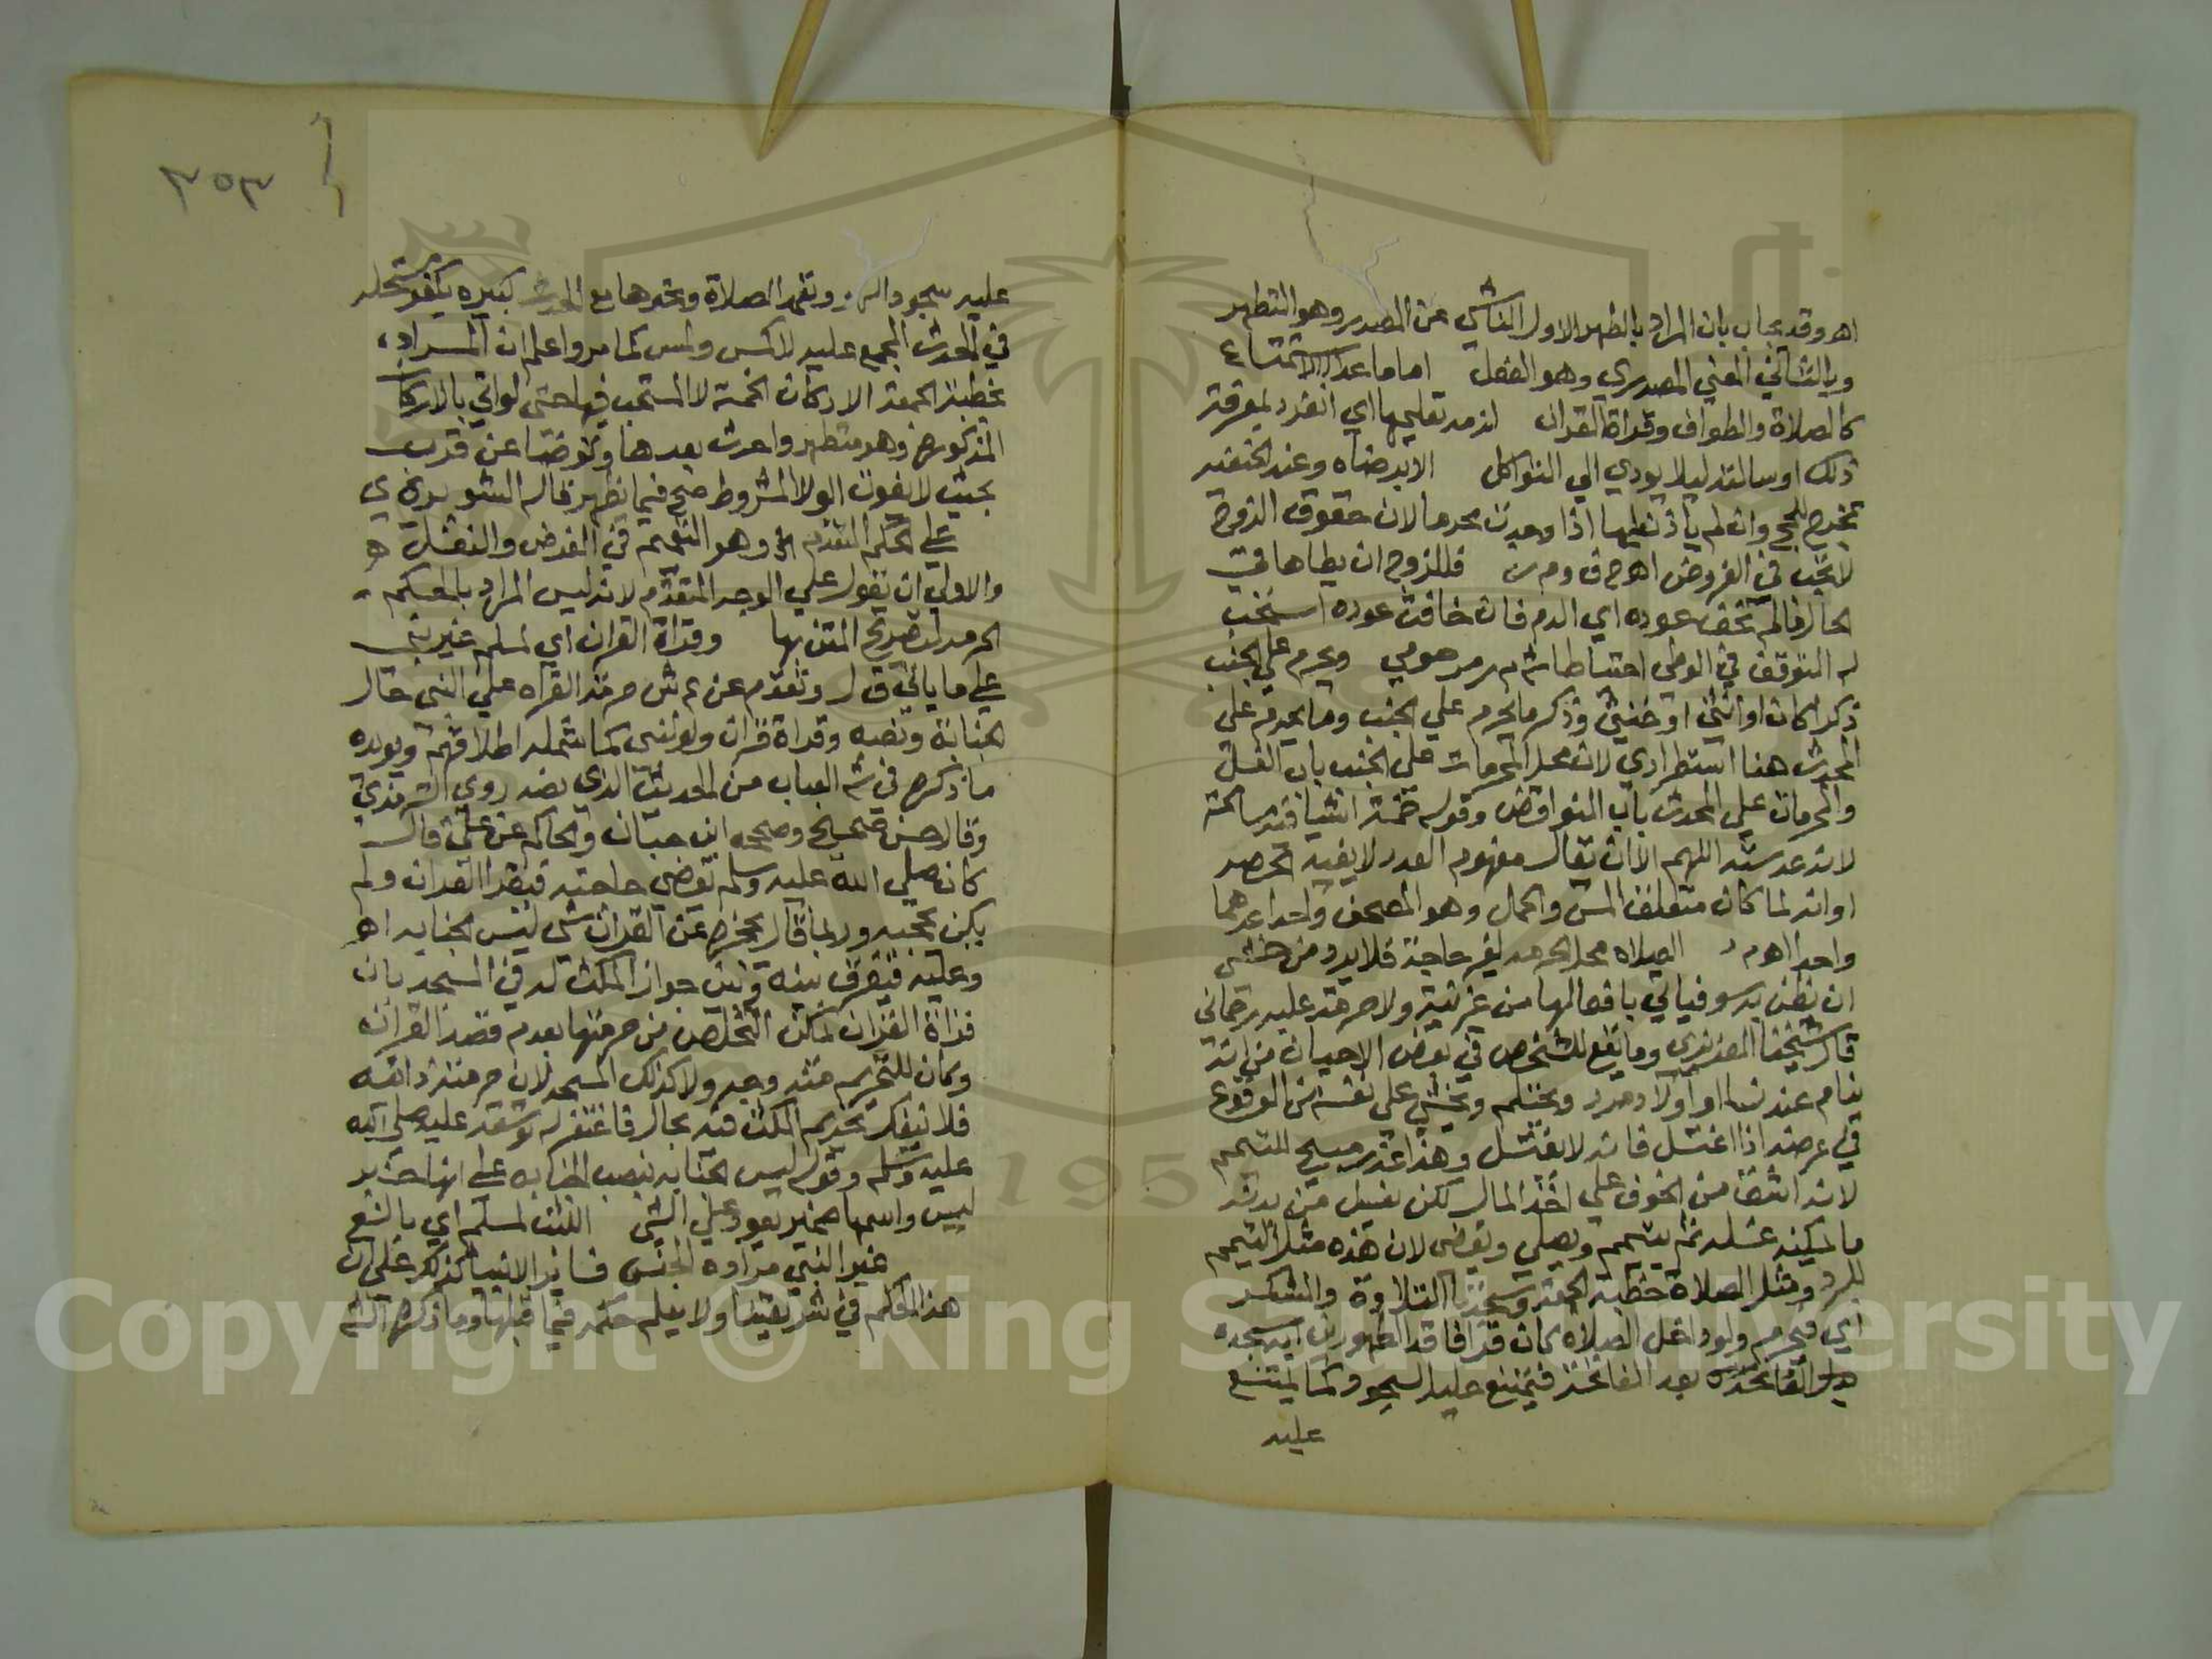 اهـ وقد يجاب بان المراد بالطهر الاول الناشي عن المصدر وهو التطهر
وبالثاني المعني المصدري وهو الفعل اما ما عدا الاستمتاع
كالصلاة والطواف وقراة القران لزمه تعليمها اي انفرد بمعرفة
ذلك او سالته ليلا يودي الي التواكل الا برضاه وعند الحنفيه
تخرج للحج وان لم ياذن لها اذا وجدت محرما لان حقوق الزوج
لا تجب في الفروض اهـ ح ف و م ر فللزوج ان يطاها في
الحال فالم تخف عوده اي الدم فان خافت عوده استحب
له التوقف في الوطي احتياطا ش م ر مرحومي ويحرم علي الجنب
ذكرا كان او انثي او خنثي وذكر ما يحرم علي الجنب وما يحرم علي
المحدث هنا استطرادي لان محل المحرمات علي الجنب باب الغسل
والمحرمات علي المحدث باب النواقض وقوله خمسة اشيا فيه مسامحة
لانه عد ستة اللهم الا ان يقال مفهوم العدد لا يفيد الحصر
او انه لما كان متعلق المس والحمل وهو المصحف واحدا عدهما
واحدا اهـ م د الصلاة محل الحرمة لغير حاجة فلا يرد من خشي
ان يظن به سو فياتي بافعالها من غير نية ولا حرمة عليه رحماني
قال شيخنا العزيزي وما يقع للشخص في بعض الاحيان من انه
ينام عند نسا او اولاد مرد ويحتلم ويخشي علي نفسه من الوقوع
في عرضه اذا اغتسل فانه لا يغتسل وهذا عذر مبيح للتيمم
لانه اشق من الخوف علي اخذ المال لكن يغسل من بدنه
ما يمكنه غسله ثم يتيمم ويصلي ويقضي لان هذه مثل التيمم
للبرد ومثل الصلاة خطبة الجمعة وسجدتا التلاوة والشكر
اي فيحرم ولو داخل الصلاة كان قرا فاقد الطهورين اية سجدة
بدل الفاتحة بعد الفاتحة فيمتنع عليه السجود كما يمتنع
عليه
٢٥٣
عليه سجود السهو وتعمد الصلاة ونحوها مع الحدث كبيرة يكفر مستحله
في الحدث المجمع عليه لا كمس ولمس كما مر واعلم ان المراد
بخطبة الجمعة الاركان الخمسة لا المستحب فيها حتى لو اتي بالاركان
المذكورة وهو متطهر واحدث بعدها وتوضا عن قرب
بحيث لا يفوت الولا المشروط صح فيما يظهر قاله الشوبري
علي الحكم المتقدم وهو التعميم في الفرض والنفل
والاولي ان يقول علي الوجه المتقدم لانه ليس المراد بالحكم
الحرمة لتصريح المتن بها وقراة القران اي لمسلم غير نبي
علي ما ياتي ق ل وتقدم عن ع ش حرمة القراه علي النبي حال
الجنابة ونصه وقراة قران ولو لنبي كما يشمله اطلاقهم ويويده
ما ذكره في ش العباب من الحديث الذي نصه روي الترمذي
وقال حسن صحيح وصححه ابن حبان والحاكم عن علي قال
كان صلي الله عليه وسلم يقضي حاجته فيقرا القران ولم
يكن يحجبه وربما قال يحجزه عن القران شي ليس الجنابه اهـ
وعليه فيفرق بينه وبين جواز المكث له في المسجد بان
قراة القران يمكن التخلص من حرمتها بعدم قصد القران
وكان للتحريم منه وجه ولا كذلك المسجد لان حرمته ذاتية
فلا ينفك تحريم المكث فيه بحال فاغتفر له توسعة عليه صلي الله
عليه وسلم وقوله ليس الجنابة بنصب الجنابه علي انها خبر
ليس واسمها ضمير يعود علي الشي اللبث لمسلم اي بالغ
غير النبي مراده الجنس فساير الانبيا كذلك علي ان
هذا الحكم في شريعتنا ولا يعلم حكمه فيما قبلها وما ذكره الشم
Copyright © King Saud University
1957